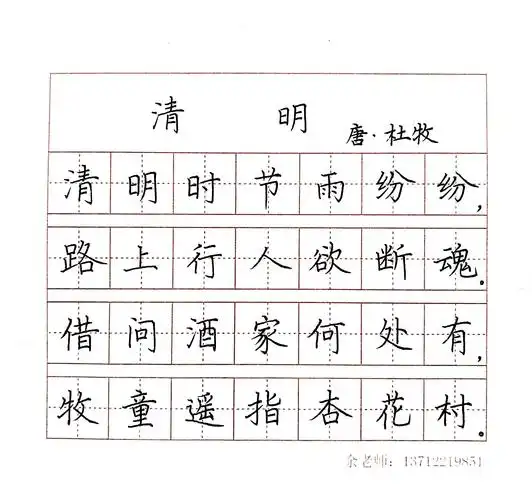 清 明
唐·杜牧
清明时节雨纷纷,
路上行人欲断魂.
借问酒家何处有,
牧童遥指杏花村.
余老师：13712219851